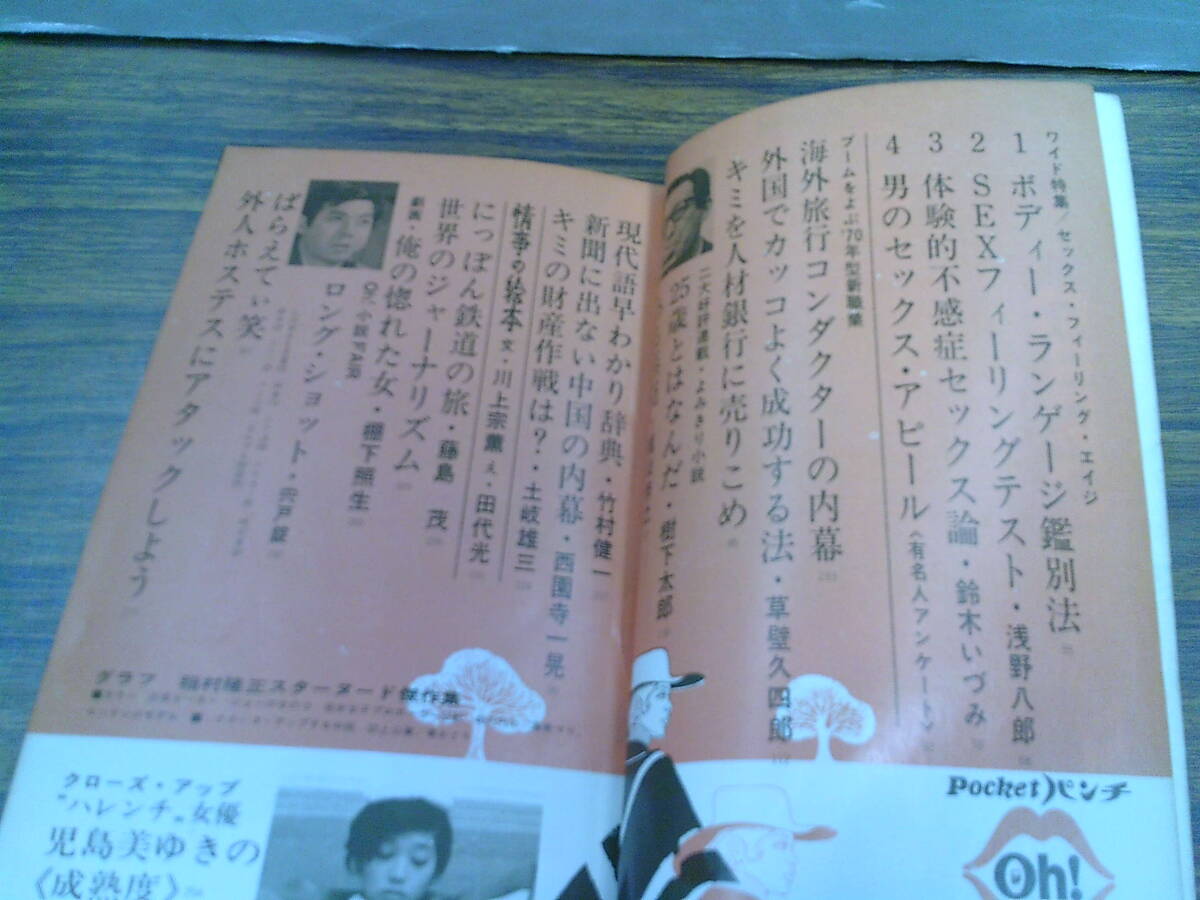 ワイド特集/セックス・フィーリング・エイジ
1 ボディー・ランゲージ鑑別法
2 SEXフィーリングテスト・浅野八郎
3 体験的不感症セックス論・鈴木いづみ
4 男のセックス・アピール《有名人アンケート》
ブームをよぶ'70年型新職業
海外旅行コンダクターの内幕
外国でカッコよく成功する法・草壁久四郎
キミを人材銀行に売りこめ
二大好評連載・よみきり小説
25歳とはなんだ・樹下太郎
現代語早わかり辞典・竹村健一
新聞に出ない中国の内幕・西園寺一晃
キミの財産作戦は?・土岐雄三
情事の絵本 文・川上宗薫 え・田代光
にっぽん鉄道の旅・藤島 茂
世界のジャーナリズム
劇画・俺の惚れた女・棚下照生
Oh!小説FAIR
ロング・ショット・宍戸錠
ばらえてぃ笑
外人ホステスにアタックしよう
グラフ 稲村隆正スターヌード傑作集
Pocketパンチ
Oh!
クローズ・アップ
"ハレンチ"女優
児島美ゆきの
《成熟度》